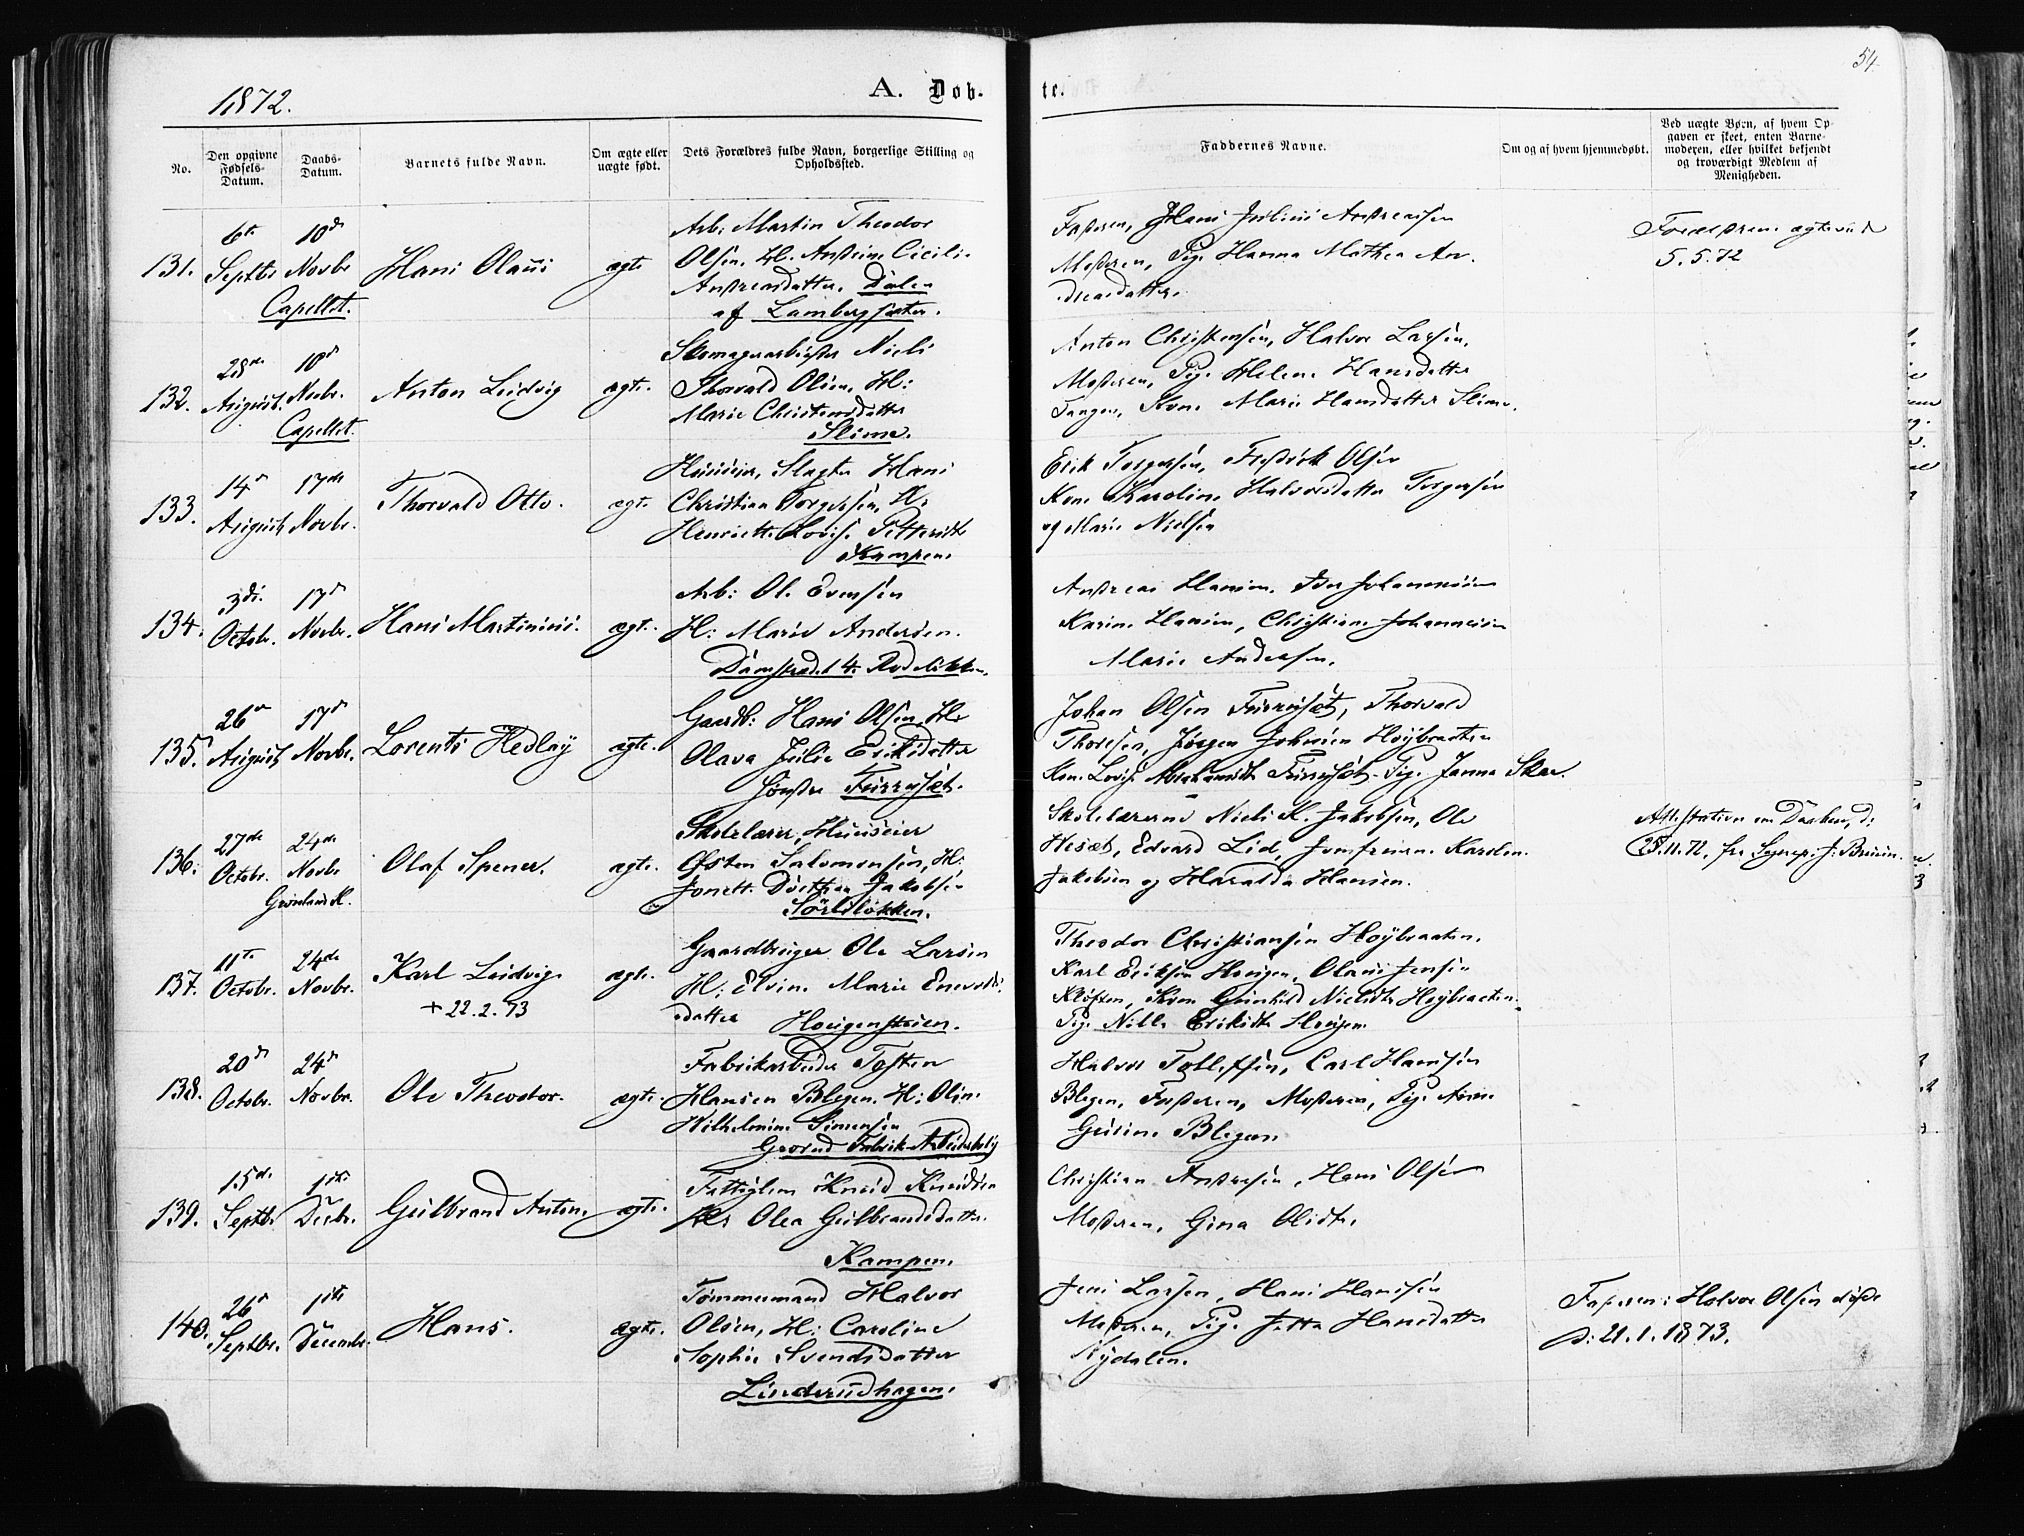 54.
1872.
A. Døb-
te.
No.
Den opgivne Fødsels-Datum.
Daabs-Datum.
Barnets fulde Navn.
Om ægte eller uægte født.
Dets Forældres fulde Navn, borgerlige Stilling og Opholdssted.
Faddernes Navne.
Om og af hvem hjemmedøbt.
Ved uægte Børn, af hvem Opgaven er skeet, enten Barnemoderen, eller hvilket bekjendt og troværdigt Medlem af Menigheden.
131.
6te Septbr
10de Novbr
Capellet.
Hans Olaus
ægte
Arb: Martin Theodor
Olsen. H.
Andreasdatter. Dalen
af Lambergsæter.
Faderen, Hans Julius Andreassen
Moderen, Pige Hanna Mathea An-
dreasdatter.
Forældrene ægteviet
5.5.72
132.
28de August.
10de Novbr.
Capellet.
Anton Ludvig
ægte.
Skomagerarbeider Niels
Thorvald Olsen. H:
Marie Christensdatter
Slime.
Anton Christensen, Halvor Larsen,
Moderen, Pige Helene Hansdatter
Tangen, Kone Marie Hansdatter Slime.
133.
14de August
17de Novbr.
Thorvald Otto.
ægte.
Huuseier, Slagter Hans
Christian Torgersen, H:
Henriette Lovise Pettersdtr
Kampen.
Erik Torgersen, Fredrik Olsen
Kone Karoline Halvorsdatter Torgersen
og Marie Nielsen
134.
3die Octobr.
17de Novbr.
Hans Martinius.
ægte.
Arb: Ole Evensen
H: Marie Andersen.
14. Rodeløkken.
Andreas Hansen. Peder Johannesen
Karine Hansen, Christian Johannesen
Marie Andersen.
135.
26de August
17de Novbr.
Lorents Hedley
ægte.
Gaardb: Hans Olsen H:
Olava Julie Eriksdatter
Søndre Furuset.
Johan Olsen Furuset, Thorvald
Thoresen, Jørgen Johnsen Høybraaten
Kone Lovise Abrahamsdtr Furuset. Pige Janna Skar.
136.
27de Octobr.
24de Novbr
Grønland K.
Olaf Spener.
ægte.
Skolelærer, Huuseier
Østen Salomonsen, H:
Jonette Dorthea Jakobsen
Sørliløkken.
Skolelærerne Niels K. Jakobsen, Ole
Hesæt, Edvard Lid, Jomfruerne Karoline
Jakobsen og Haralda Hansen.
Attestation om Daaben, d:
25.11.72, fra Sognep. J: Bruun.
137.
11te Octobr.
24de Novbr.
Karl Ludvig.
+ 22.2.73
ægte.
Gaardbruger Ole Larsen
H: Elvine Marie Enevolds-
datter
Haugenstuen.
Theodor Christiansen Høybraaten.
Karl Eriksen Haugen, Olaus Jensen
Kløften, Kone Gunhild Nielsdtr Høybraaten.
Pige Nille Eriksdtr Haugen.
138.
20de Octobr.
24de Novbr.
Ole Theodor.
ægte.
Fabrikarbeider Tosten
Hansen Blegen. H: Oline
Wilhelmine Simensen
Grorud Fabrik-Arbeiderbolig
Halvor Tollefsen, Carl Hansen
Blegen, Faderen, Moderen, Pige Anne
Gusine Blegen
139.
15de Septbr.
1ste Decbr.
Gulbrand Anton.
ægte.
Fattiglem Knud Knudsen
H: Olea Gulbrandsdatter.
Kampen.
Christian Andresen, Hans Olsen
Moderen, Gina Olsdtr.
140.
26de Septbr.
1ste Decembr.
Hans.
ægte.
Tømmermand Halvor
Olsen, H: Caroline
Sophie Svendsdatter
Linderudhagen.
Jens Larsen, Hans Hansen
Moderen, Pige Jette Hansdatter
Nydalen.
Faderen: Halvor Olsen døde
d: 21.1.1873.